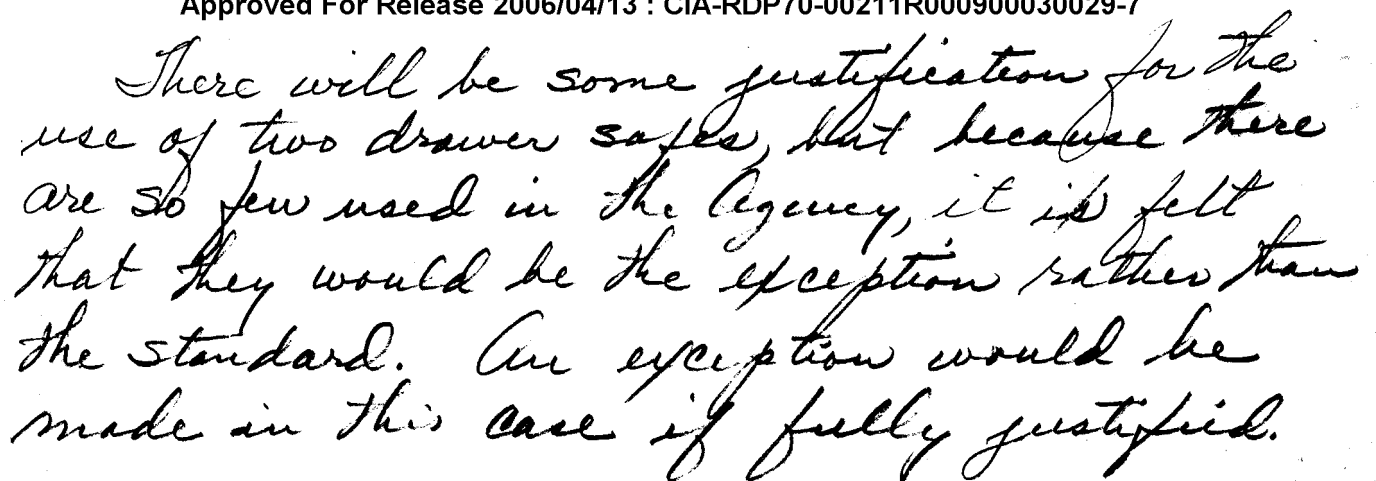 Approved For Release 2006/04/13 : CIA-RDP70-00211R000900030029-7
There will be some justification for the
use of two drawer safes, but because there
are so few used in the Agency, it is felt
that they would be the exception rather than
the standard. An exception would be
made in this case if fully justified.